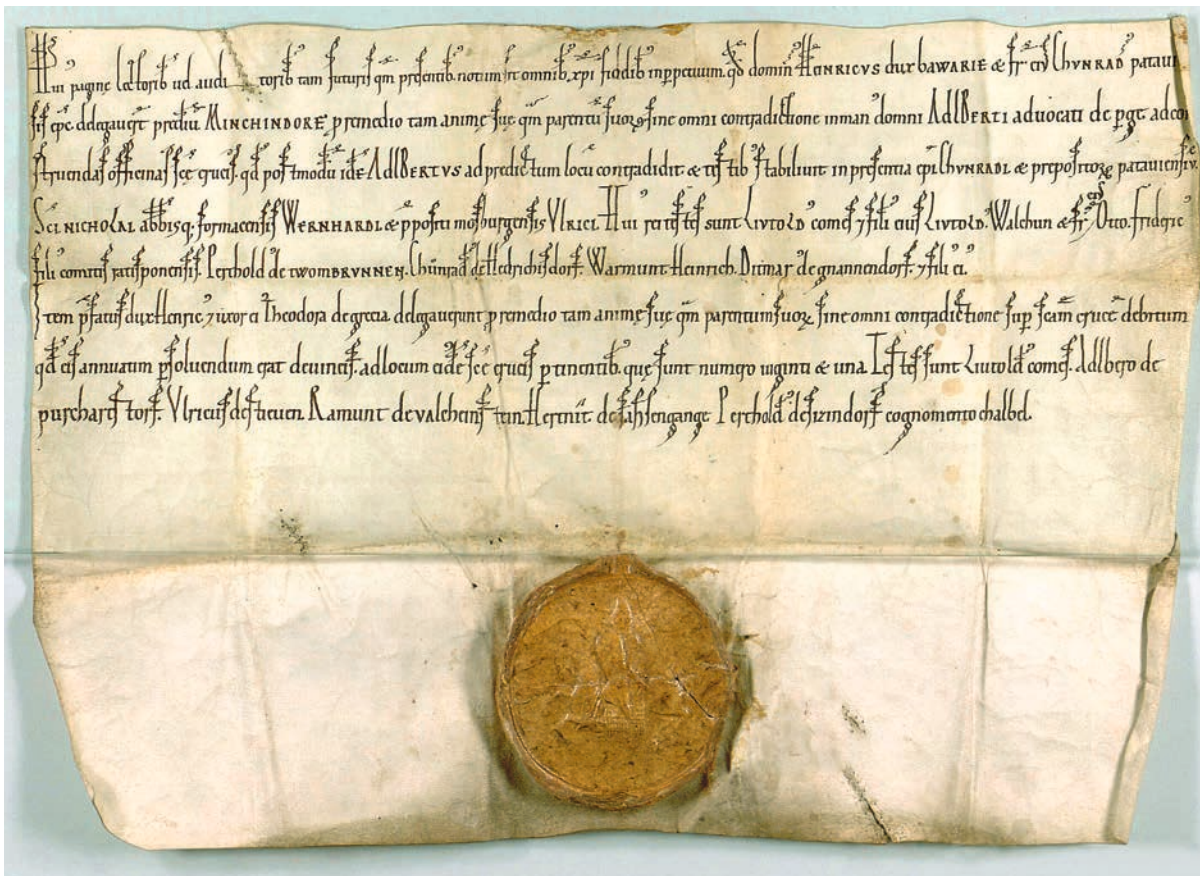 Hui' pagine lectorib' ud audi torib' tam futuris qm presentib' notum sit omnib' xpi fidelib' inperpetuum. qd domin' HEINRICVS dux bawarie & fr ei' ChVNRAD' patavi
sis epc delegaverunt prediu MINCHINDORF p remedio tam anime sue qm parentu suoꝝ sine omni contradictione in man' domni AdlBERTI advocati de ad con
struendas officinas sce crucis. qd postmodu ide AdlBERTVS ad predictum locu contradidit & testib' stabilivit in presentia epi ChVNRADI. & prepositoꝝ pataviensiu.
SCI NICHOLAI. abbisq; formacensis WERNHARDI. & ppositi mosburgensis VLRICI. Hui' rei testes sunt LIVTOLD' comes ⁊ fili' eius LIVTOLD'. Walchun & fr ei' Otto. frideric'
filii comitis ratisponensis. Perchold' de TWOMBRVNNEN. Chunrad' de Hedrichisdorf. Warmunt. Heinrich. Ditmar' de gnannendorf. ⁊ filii ei'.
Item pfatus dux Henric' ⁊ uxor ei' Theodora de grecia delegaverunt p remedio tam anime sue qm parentum suoꝝ sine omni contradictione sup scam cruce debitum
qd eis annuatim psolvendum erat de vineis. ad locum eide sce crucis ptinentib'. que sunt numero viginti & una. Testes sunt Liutold' comes. Adlbero de
purchartstorf. Vlricus de stieven. Ramunt de valchenstein. Hertnit. de Perchold' de sizindorf cognomento chalbel.